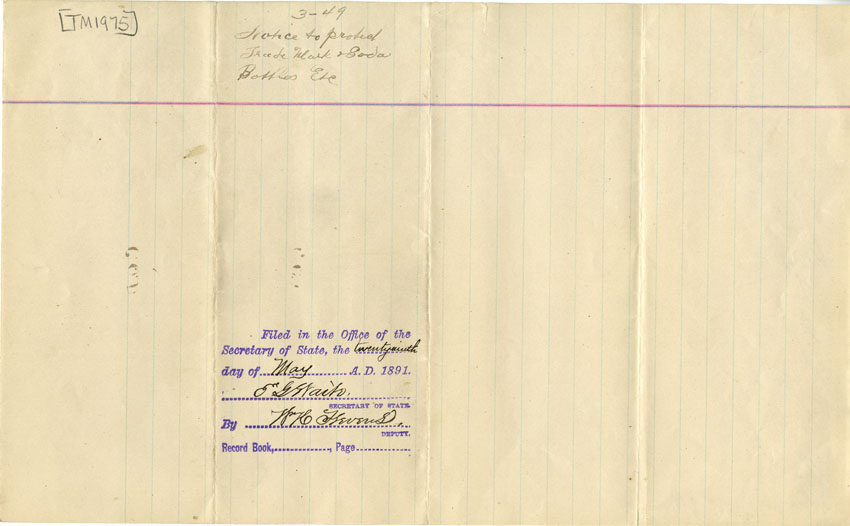 [TM1975]
3-49
Notice to protect
Trade Mark & Soda
Bottles Etc
Filed in the Office of the
Secretary of State, the twentyninth
day of May A. D. 1891.
E G Waite.
SECRETARY OF STATE.
By Wm H Stevens,
DEPUTY.
Record Book, , Page